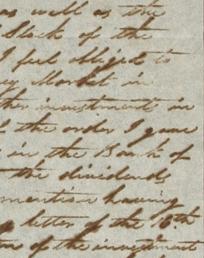 as well as the
Stock of the
I feel obliged to
my Market in
ther investment in
f the order I gave
in the Bank of
the dividends
mention having
letter of the 16th
of the investment